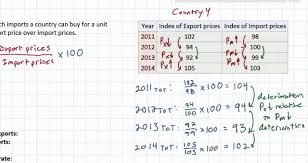 Country Y
ch imports a country can buy for a unit
ort price over import prices.
Export prices
Import prices
x 100
Year Index of Export prices Index of Import prices
2011 102 98
2012 Px↓ 94 Pm↑ 100
2013 Px↓ 92 Pm↓ 99
2014 Px↑ 105 Pm↑ 103
2011 TOT: 102/98 x 100 = 104
2012 TOT: 94/100 x 100 = 94
2013 TOT: 92/99 x 100 = 93
2014 TOT: 105/103 x 100 = 102
deterioration
Px↓ relative
to Pm↓
deterioration
ports:
rts:
rate: